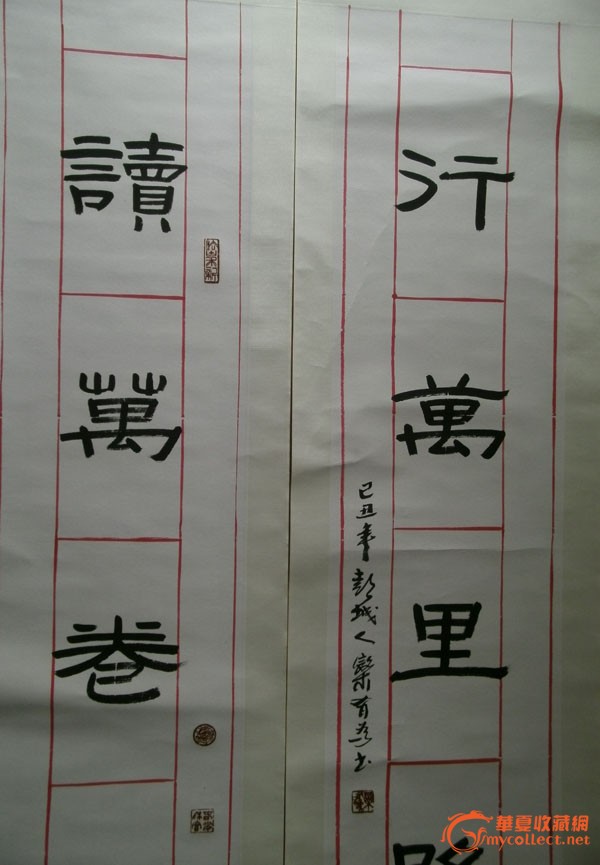 行萬里
己丑年彭城人欒有為書
讀萬卷
華夏收藏網
mycollect.net